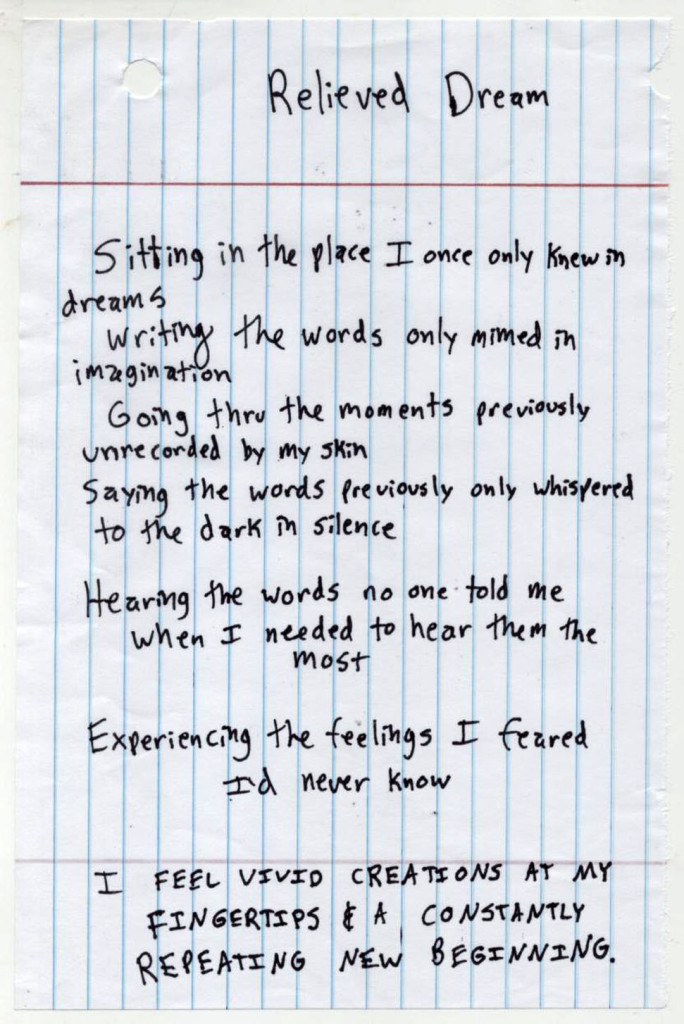 Relieved Dream
Sitting in the place I once only knew in
dreams
Writing the words only mimed in
imagination
Going thru the moments previously
unrecorded by my skin
Saying the words previously only whispered
to the dark in silence
Hearing the words no one told me
when I needed to hear them the
most
Experiencing the feelings I feared
I'd never know
I FEEL VIVID CREATIONS AT MY
FINGERTIPS & A CONSTANTLY
REPEATING NEW BEGINNING.